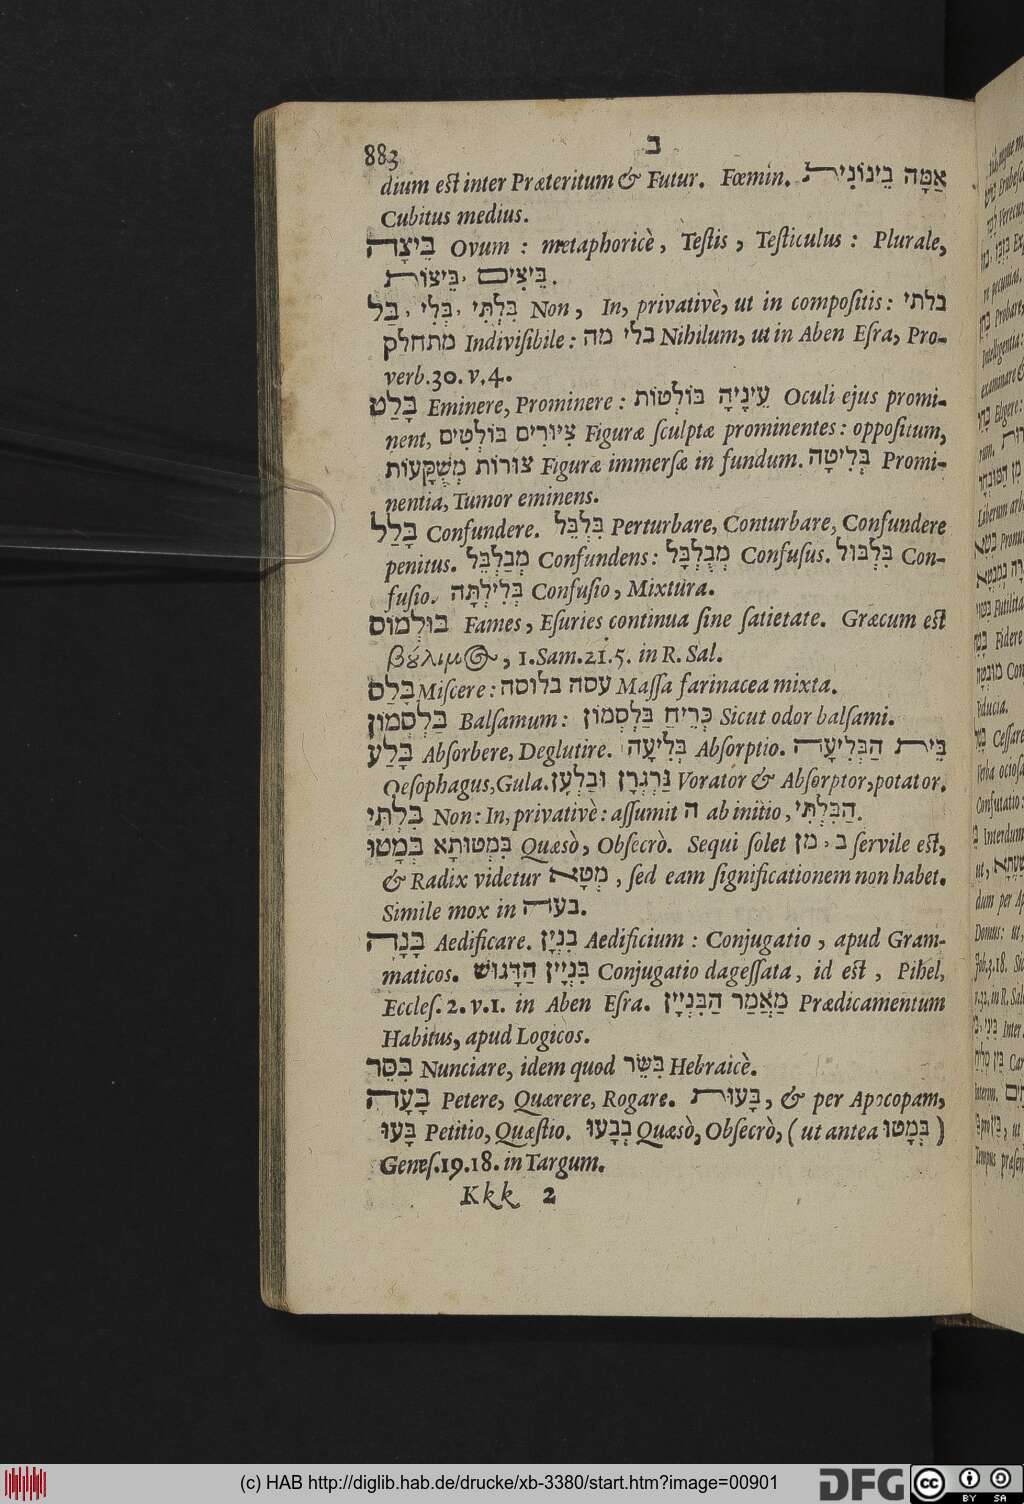 883
ב
dium eſt inter Præteritum & Futur. Fœmin. אַמָּה בֵינוֹנִית
Cubitus medius.
בֵּיצָה Ovum : metaphoricè, Teſtis, Teſticulus : Plurale,
בֵּיצִים, בֵּיצוֹת.
בִּלְתִּי, בְּלִי, בַּל Non, In, privativè, ut in compoſitis : בלתי
מתחלק Indiviſibile : בלי מה Nihilum, ut in Aben Eſra, Pro-
verb.30. v.4.
בָּלַט Eminere, Prominere : עֵינֶיהָ בּוֹלְטוֹת Oculi ejus promi-
nent, צִיּוּרִים בּוֹלְטִים Figuræ ſculptæ prominentes : oppoſitum,
צורות מְשֻׁקָּעוֹת Figuræ immerſæ in fundum. בְּלִיטָה Promi-
nentia, Tumor eminens.
בָּלַל Confundere. בִּלְבֵּל Perturbare, Conturbare, Confundere
penitus. מְבַלְבֵּל Confundens : מְבֻלְבָּל Confuſus. בִּלְבּוּל Con-
fuſio. בְּלִילְתָּה Confuſio, Mixtura.
בּוּלְמוֹס Fames, Eſuries continua ſine ſatietate. Græcum eſt
βούλιμος, 1.Sam.21.5. in R. Sal.
בָּלַס Miſcere : עסה בלוסה Maſſa farinacea mixta.
בַּלְסְמוֹן Balſamum : כְּרֵיחַ בַּלְסְמוֹן Sicut odor balſami.
בָּלַע Abſorbere, Deglutire. בְּלִיעָה Abſorptio. בֵּית הַבְּלִיעָה
Oeſophagus, Gula. גַּרְגְּרָן וּבַלְעָן Vorator & Abſorptor, potator.
בִּלְתִּי Non : In, privativè : aſſumit ה ab initio, הַבִּלְתִּי.
בִּמְטוּתָא בְּמָטוּ Quæsò, Obſecrò. Sequi ſolet מן, ב ſervile eſt,
& Radix videtur מְטָא, ſed eam ſignificationem non habet.
Simile mox in בעה.
בָּנָה Aedificare. בִּנְיָן Aedificium : Conjugatio, apud Gram-
maticos. בִּנְיָין הַדָּגוּשׁ Conjugatio dageſſata, id eſt, Pihel,
Eccleſ. 2. v.1. in Aben Eſra. מַאֲמַר הַבִּנְיָין Prædicamentum
Habitus, apud Logicos.
בִּסֵּר Nunciare, idem quod בִּשֵּׂר Hebraicè.
בָּעָה Petere, Quærere, Rogare. בָּעוּת, & per Apocopam,
בָּעוּ Petitio, Quæſtio. בְּבָעוּ Quæsò, Obſecrò, (ut antea בְּמָטוּ)
Geneſ.19.18. in Targum.
Kkk 2
(c) HAB http://diglib.hab.de/drucke/xb-3380/start.htm?image=00901
DFG
cc BY SA